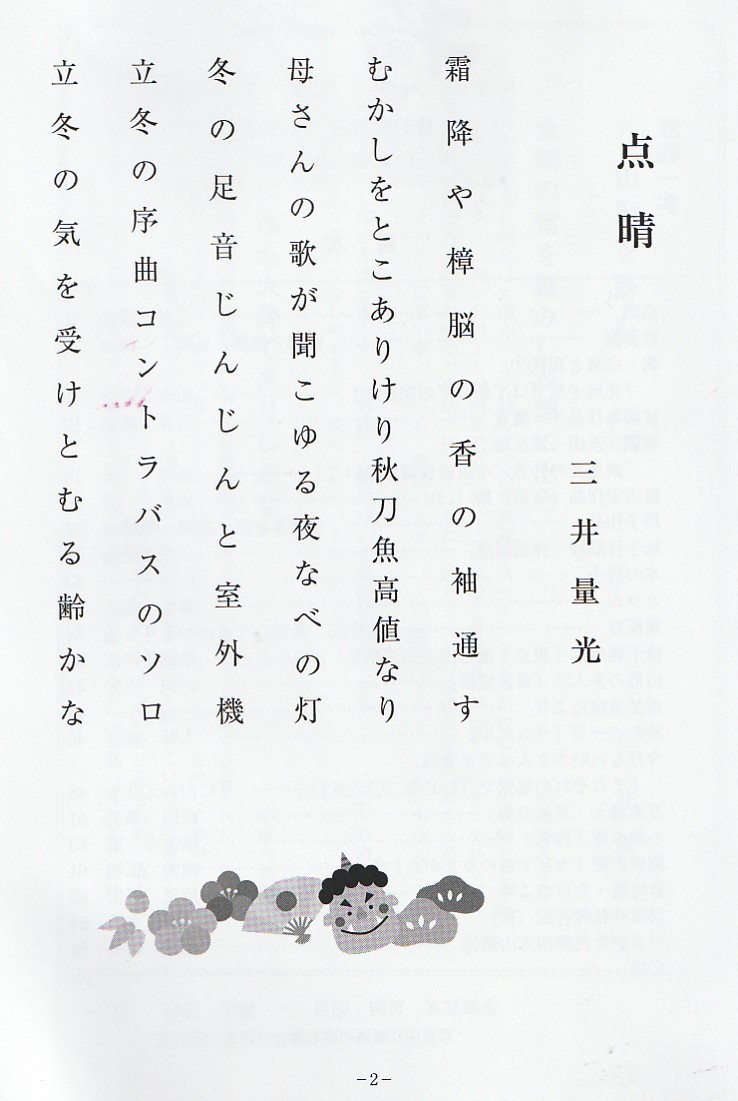 点晴
三井量光
霜降や樟脳の香の袖通す
むかしをとこありけり秋刀魚高値なり
母さんの歌が聞こゆる夜なべの灯
冬の足音じんじんと室外機
立冬の序曲コントラバスのソロ
立冬の気を受けとむる齢かな
-2-